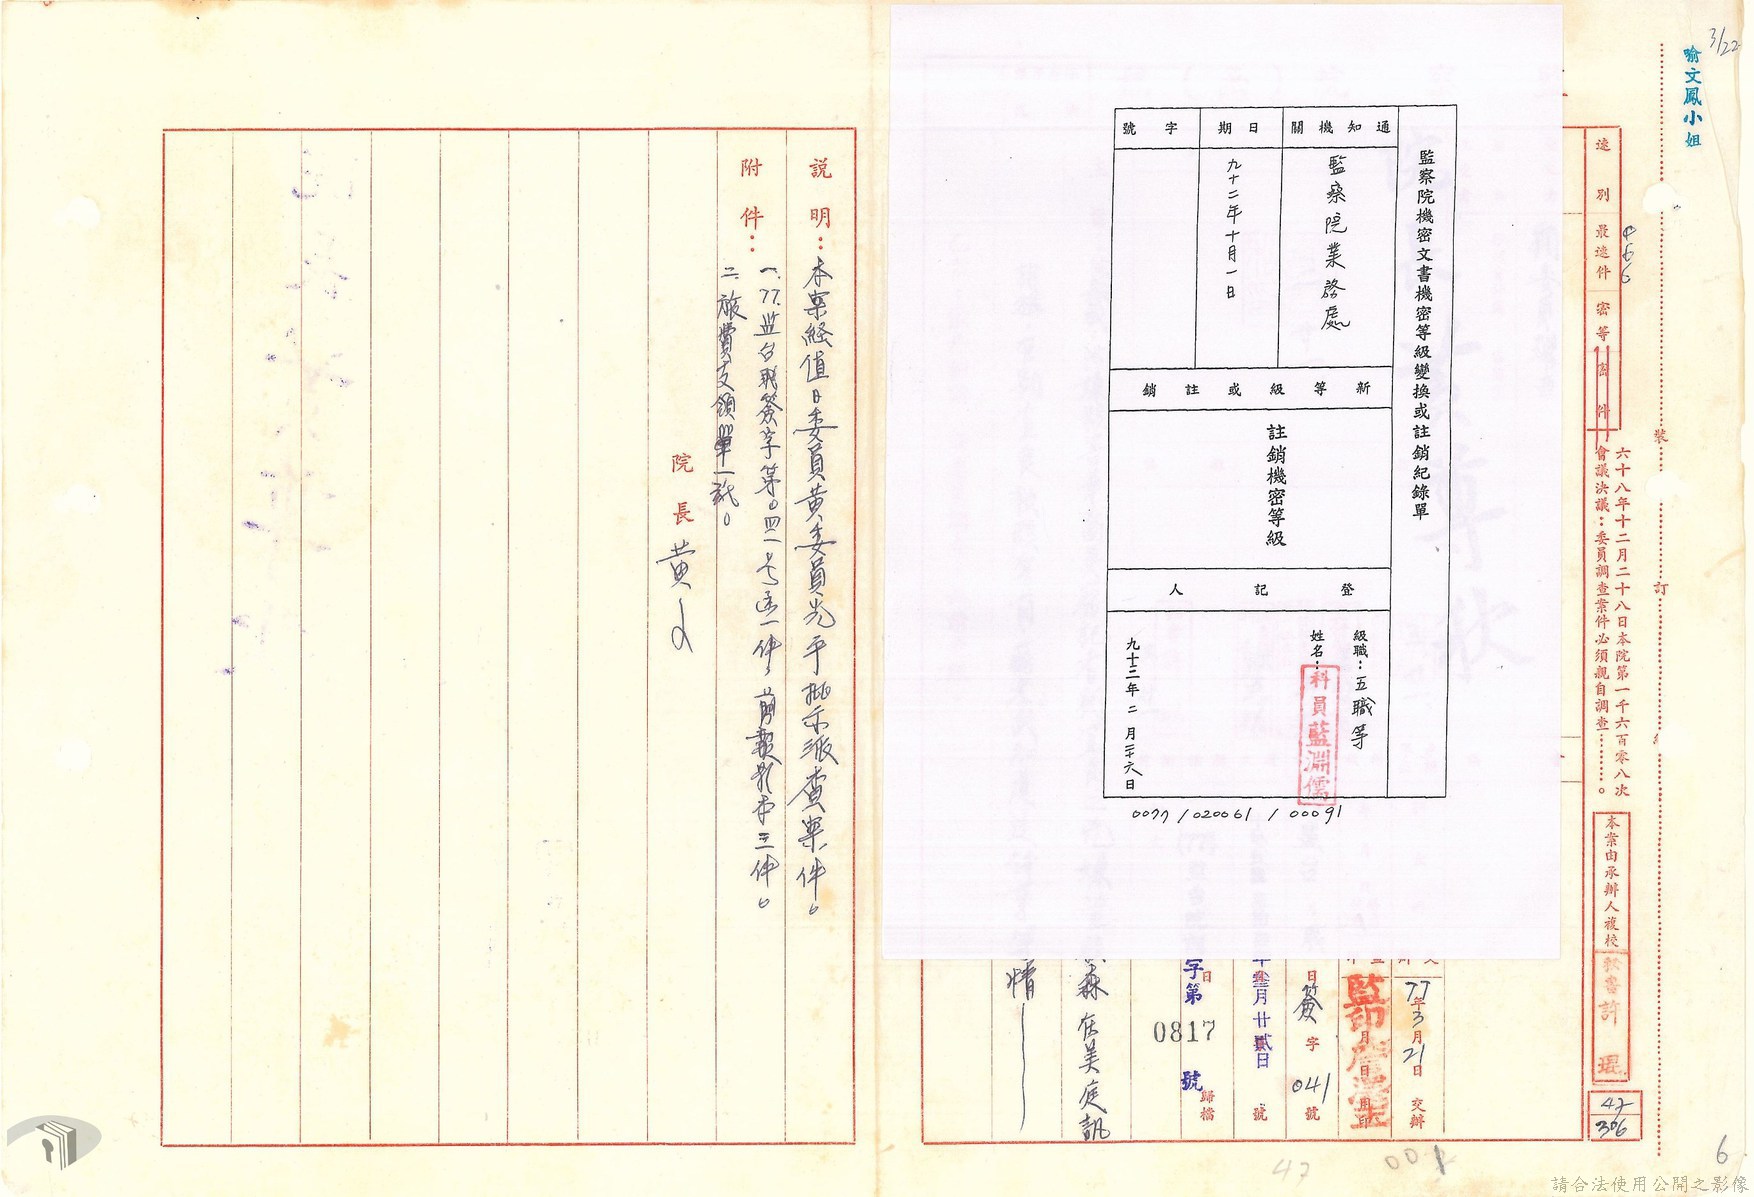 3/22
喻文鳳小姐
裝
訂
線
六十八年十二月二十八日本院第一千六百零八次
會議決議：委員調查案件必須親自調查………。
速別
最速件
密等
密件
本案由承辦人複校
秘書許琨
47
306
監察院機密文書機密等級變換或註銷紀錄單
通知機關
監察院業務處
日期
九十二年十月一日
字號
新等級或註銷
註銷機密等級
登記人
級職：五職等
姓名：
科員藍淵儒
九十三年二月二十六日
0077/020061/00091
77年3月21日交辦
監印
簽字041號
年叁月廿貳日
字第0817號
歸檔
森在美庭訊
情
說明：本案經值日委員黃委員光平批示派查案件。
附件：
一、77.監台職簽字第○四一号函一件，剪報影本三件。
二、旅費支領單一紙。
院長黃
47
001
6
請合法使用公開之影像